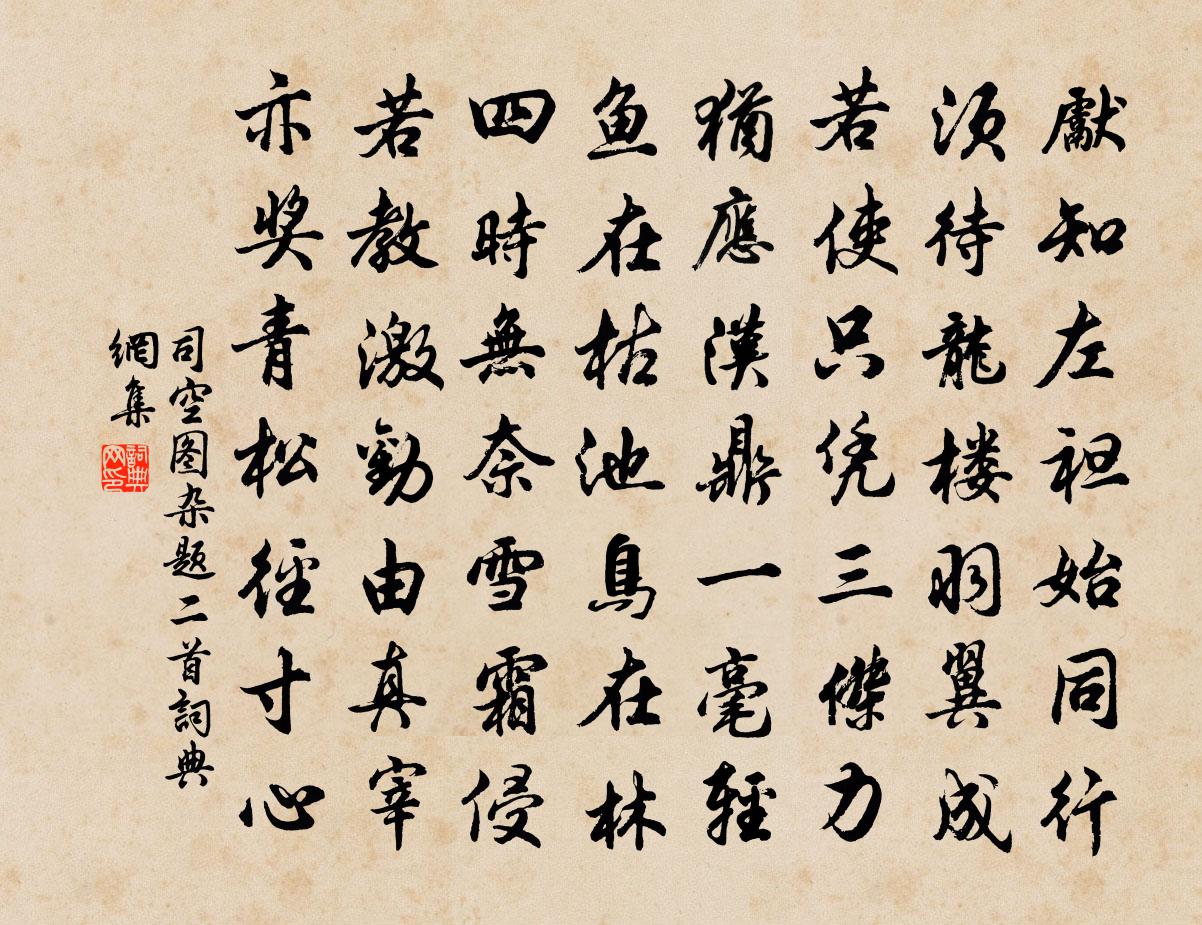 獻知左袒始同行
须待龍楼羽翼成
若使只凭三傑力
猶應漢鼎一毫輕
鱼在枯池鳥在林
四時無奈雪霜侵
若教激勸由真宰
亦奖青松徑寸心
司空图杂题二首詞典
網集
詞典
网印